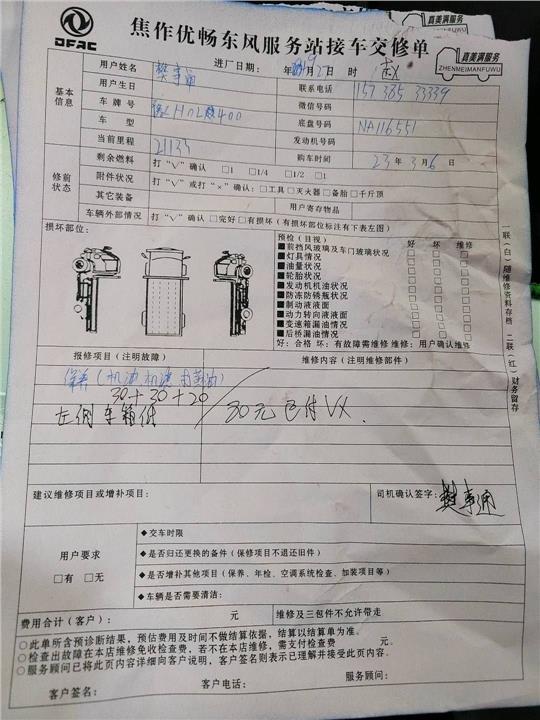 DFAC
焦作优畅东风服务站接车交修单
真美满服务
ZHENMEIMANFUWU
真美满服务
ZHENMEIMANFUWU
基本信息
用户姓名 进厂日期: 年 月27日 时
联系电话 157 385 33339
用户生日 微信号码
车牌号 豫H 底盘号码 NA116551
车型 400 发动机号码
当前里程 21133 购车时间 23年3月6日
修前状态
剩余燃料 打“√”确认 □1 □1/4 □1/2 □1
附件状况 打“√”或打“×”确认:□工具□灭火器□备胎□千斤顶
其它装备 用户寄存物品
车辆外部情况 打“√”确认□完好□有损坏(有损坏部位标注有下表左图)
损坏部位:
预检(目视) 好 坏 维修
■前挡风玻璃及车门玻璃状况 □ □ □
■灯具情况 □ □ □
■油量状况 □ □ □
■轮胎状况 □ □ □
■发动机机油状况 □ □ □
■防冻防锈瓶状况 □ □ □
■制动液液面 □ □ □
■动力转向液液面 □ □ □
■变速箱漏油情况 □ □ □
■后桥漏油情况 □ □ □
好:合格 坏:有故障需维修 维修:用户确认维修
报修项目(注明故障) 维修内容(注明维修部件)
保养(机油 机滤 打黄油)
30+30+20
左侧车箱 80元已付VX.
建议维修项目或增补项目:
司机确认签字: 樊事通
用户要求
□有 □无
◆交车时限
◆是否归还更换的备件(保修项目不退还旧件)
◆是否增补其他项目(保养、年检、空调系统检查、加装项目等)
◆车辆是否需要清洁:
费用合计(客户): 元 维修及三包件不允许带走
○此单所含预诊断结果,预估费用及时间不做结算依据,结算以结算单为准。
○检查出故障在本店维修免收检查费,若不在本店维修,需支付检查费 元。
○服务顾问已将此页内容详细向客户说明,客户签名则表示已理解并接受此页内容。
客户签名: 客户电话: 服务顾问:
一联(白)随维修资料存档 二联(红)财务留存